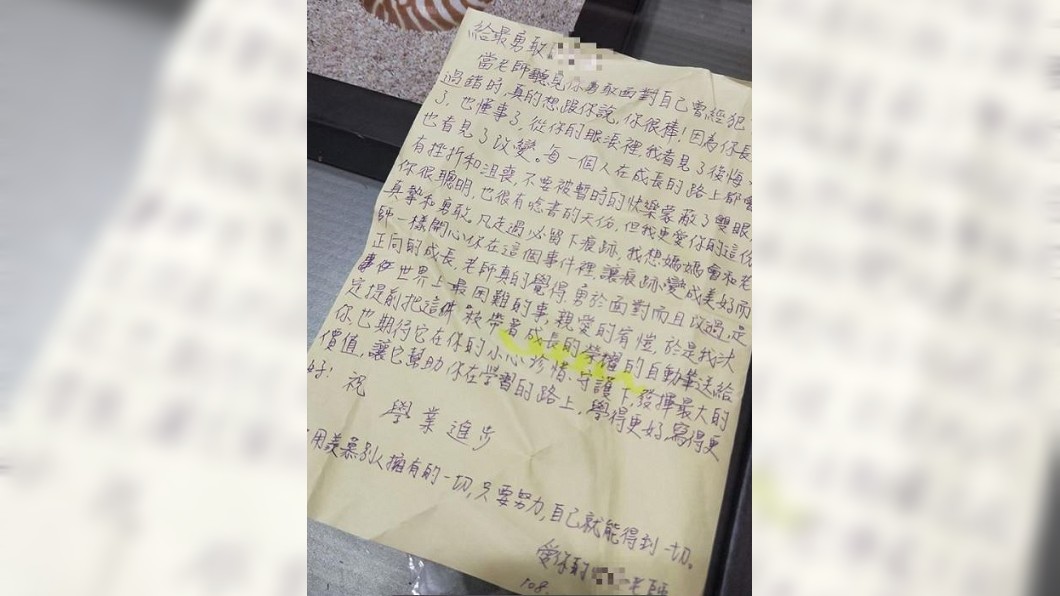 給最勇敢
當老師聽見你勇敢面對自己曾經犯
過錯時,真的想跟你說,你很棒!因為你長
了,也懂事了,從你的眼淚裡,我看見了後悔,
也看見了改變。每一個人在成長的路上都會
有挫折和沮喪,不要被暫時的快樂蒙蔽了雙眼,
你很聰明,也很有唸書的天份,但我更愛你的這份
真摯和勇敢,凡走過必留下痕跡,我想媽媽會和老
師一樣開心你在這個事件裡,讓痕跡變成美好而
正向的成長,老師真的覺得,勇於面對而且改過,是
世界上最困難的事,親愛的宥愷,於是我決
定提前把這件 款帶著成長的榮耀的自動筆送給
你也期待它在你的小心珍惜、守護下,發揮最大的
價值,讓它幫助你在學習的路上,學得更好,寫得更
好!祝
學業進步
用羨慕別人擁有的一切,只要努力,自己就能得到一切。
愛你的 老師
108.